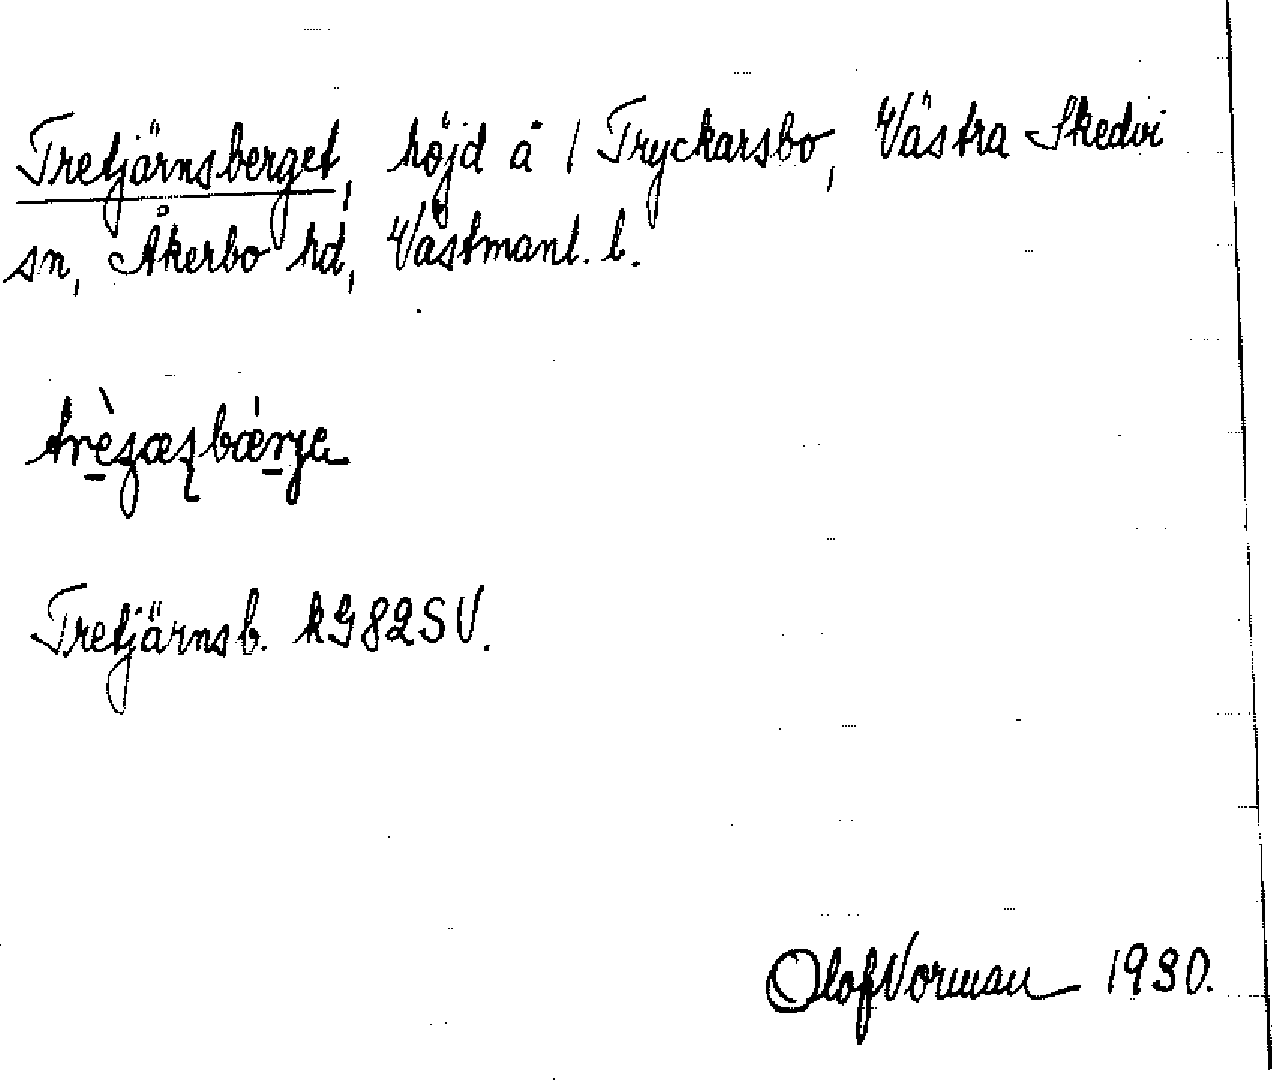 Tretjärnsberget, höjd å 1 Tryckarsbo, Västra Skedvi
sn, Åkerbo hd, Västmanl. l.
Tretjärnsb. kG82SV.
Olof Norman 1930.